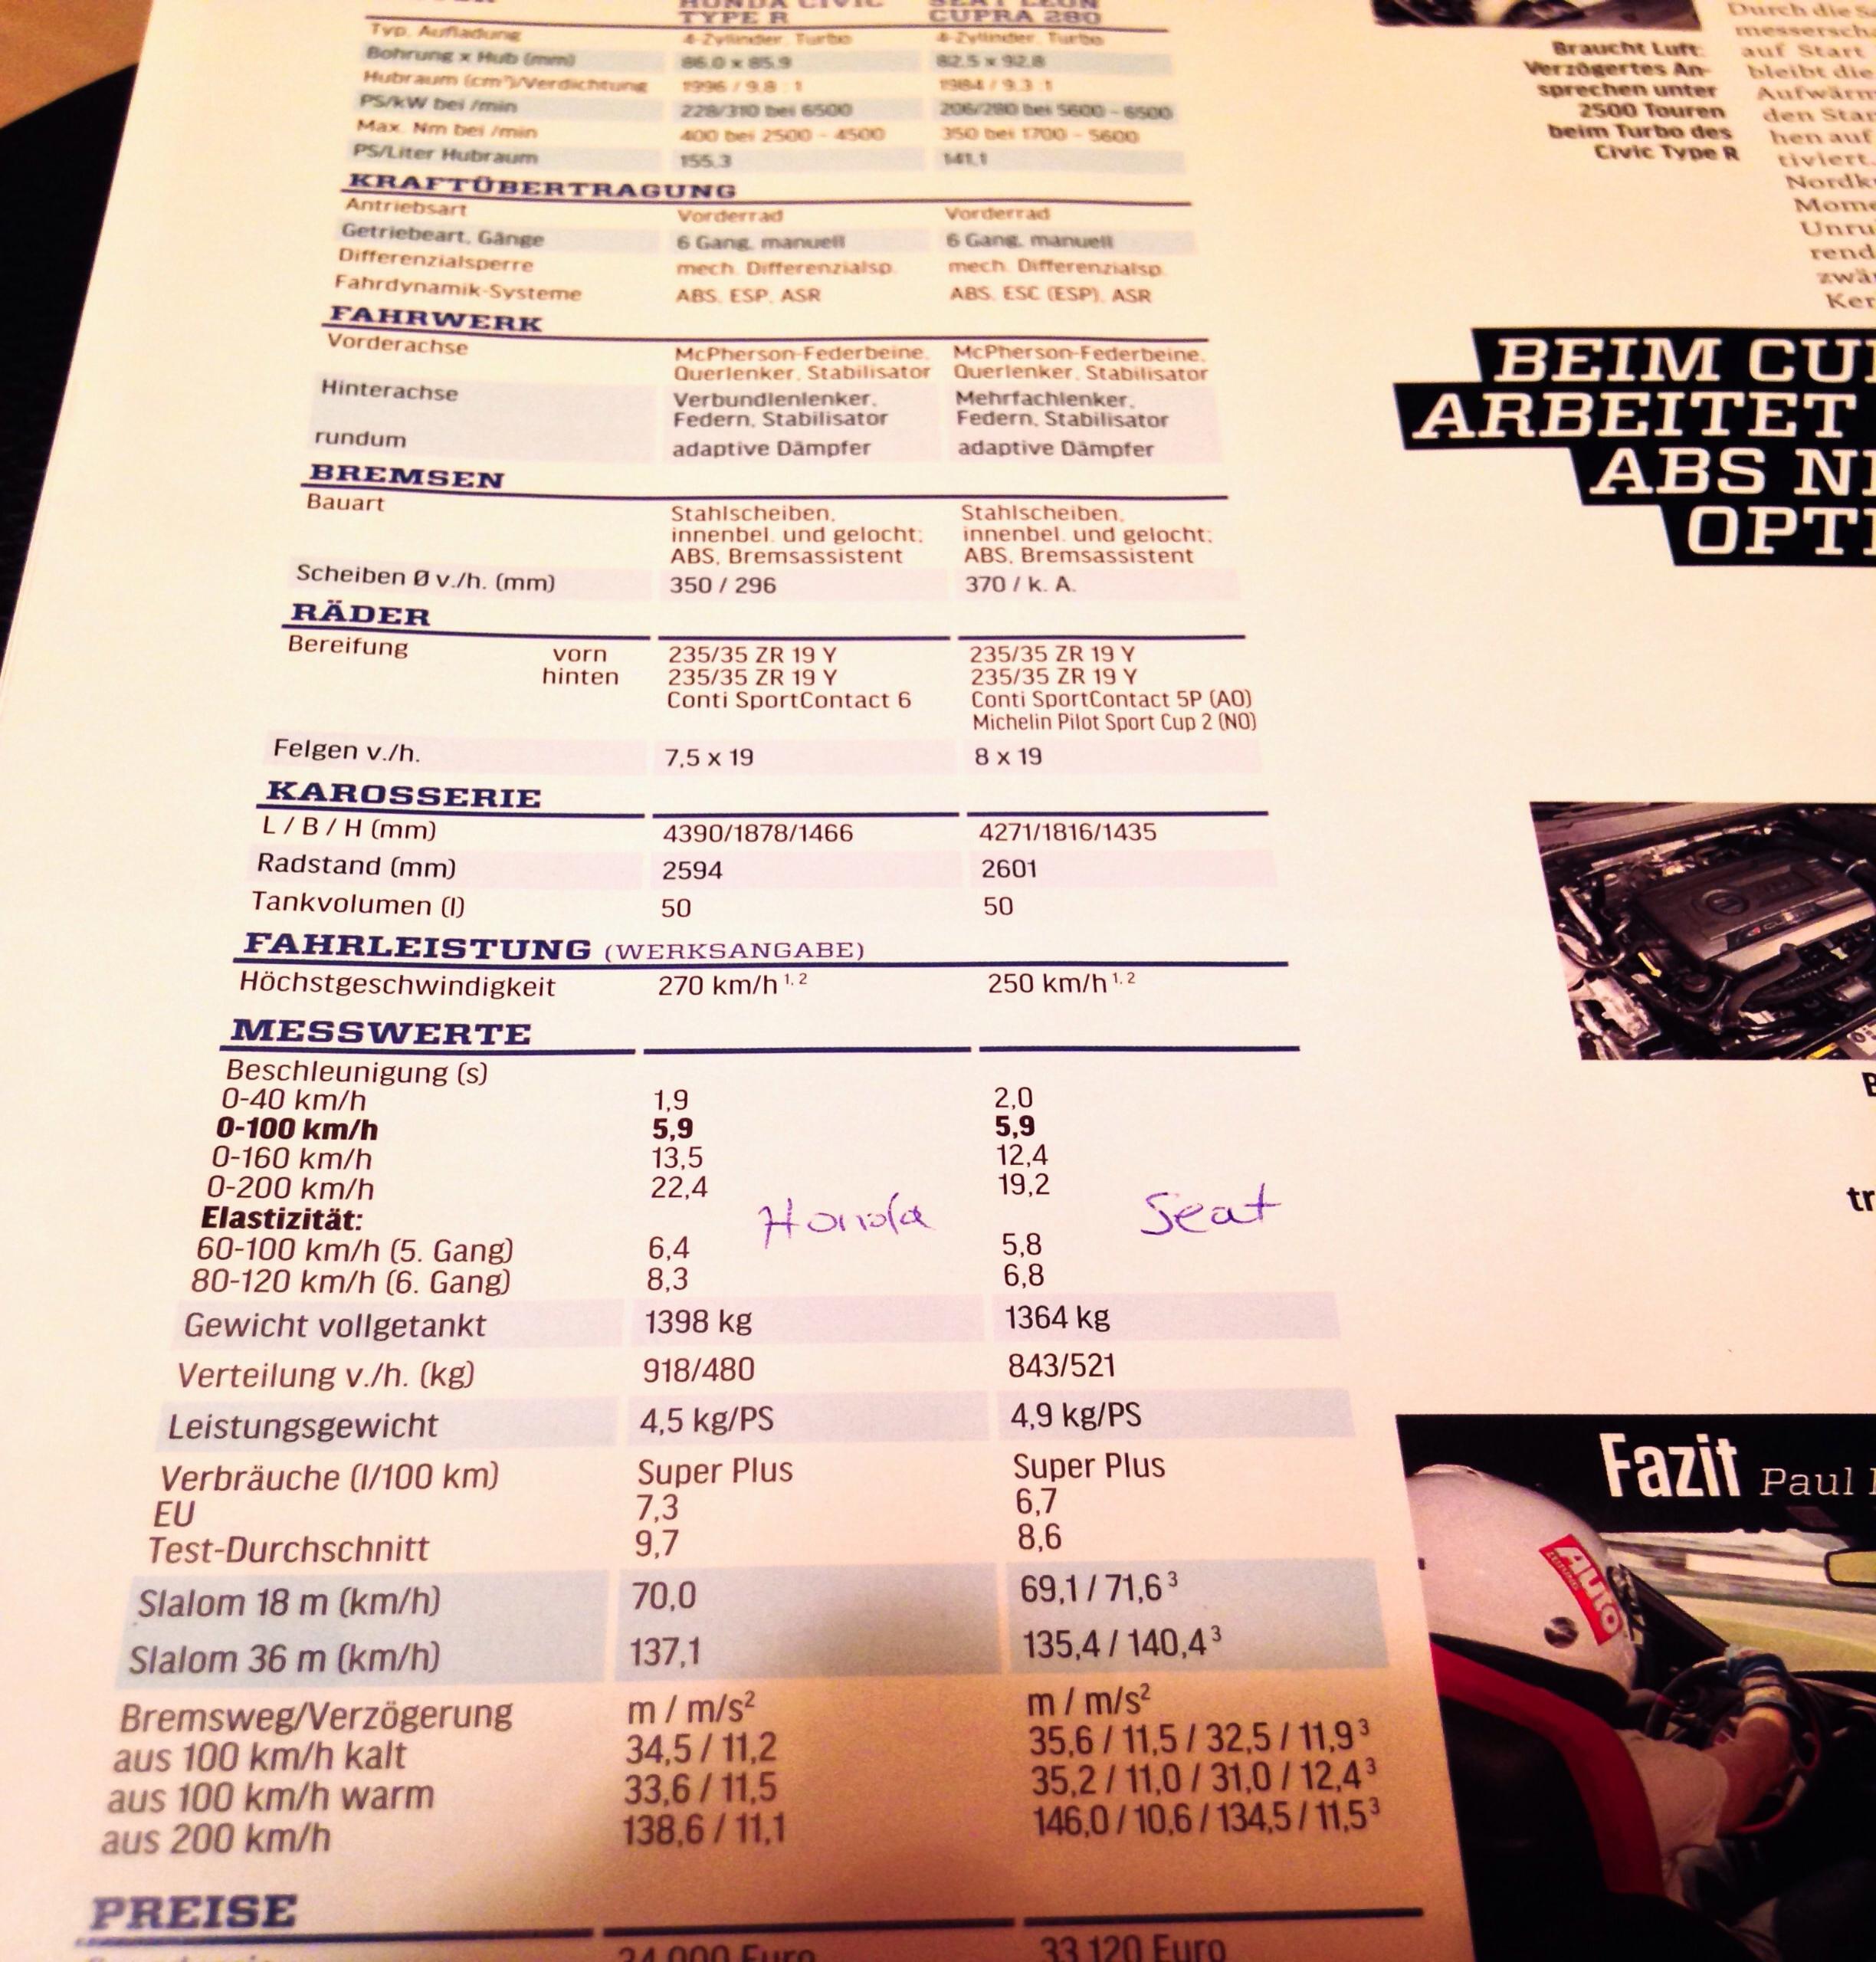 HONDA CIVIC SEAT LEON
TYPE R CUPRA 280
Typ, Aufladung 4-Zylinder, Turbo 4-Zylinder, Turbo
Bohrung x Hub (mm) 86.0 x 85,9 82,5 x 92,8
Hubraum (cm³)/Verdichtung 1996 / 9.8 : 1 1984 / 9.3 : 1
PS/kW bei /min 228/310 bei 6500 206/280 bei 5600 - 6500
Max. Nm bei /min 400 bei 2500 - 4500 350 bei 1700 - 5600
PS/Liter Hubraum 155,3 141,1
KRAFTÜBERTRAGUNG
Antriebsart Vorderrad Vorderrad
Getriebeart, Gänge 6 Gang, manuell 6 Gang, manuell
Differenzialsperre mech. Differenzialsp. mech. Differenzialsp.
Fahrdynamik-Systeme ABS, ESP, ASR ABS, ESC (ESP), ASR
FAHRWERK
Vorderachse McPherson-Federbeine, McPherson-Federbeine,
Querlenker, Stabilisator Querlenker, Stabilisator
Hinterachse Verbundlenlenker, Mehrfachlenker,
Federn, Stabilisator Federn, Stabilisator
rundum adaptive Dämpfer adaptive Dämpfer
BREMSEN
Bauart Stahlscheiben, Stahlscheiben,
innenbel. und gelocht; innenbel. und gelocht;
ABS, Bremsassistent ABS, Bremsassistent
Scheiben Ø v./h. (mm) 350 / 296 370 / k. A.
RÄDER
Bereifung vorn 235/35 ZR 19 Y 235/35 ZR 19 Y
hinten 235/35 ZR 19 Y 235/35 ZR 19 Y
Conti SportContact 6 Conti SportContact 5P (AO)
Michelin Pilot Sport Cup 2 (NO)
Felgen v./h. 7,5 x 19 8 x 19
KAROSSERIE
L / B / H (mm) 4390/1878/1466 4271/1816/1435
Radstand (mm) 2594 2601
Tankvolumen (l) 50 50
FAHRLEISTUNG (WERKSANGABE)
Höchstgeschwindigkeit 270 km/h 1, 2 250 km/h 1, 2
MESSWERTE
Beschleunigung (s)
0-40 km/h 1,9 2,0
0-100 km/h 5,9 5,9
0-160 km/h 13,5 12,4
0-200 km/h 22,4 19,2
Honda Seat
Elastizität:
60-100 km/h (5. Gang) 6,4 5,8
80-120 km/h (6. Gang) 8,3 6,8
Gewicht vollgetankt 1398 kg 1364 kg
Verteilung v./h. (kg) 918/480 843/521
Leistungsgewicht 4,5 kg/PS 4,9 kg/PS
Verbräuche (l/100 km) Super Plus Super Plus
EU 7,3 6,7
Test-Durchschnitt 9,7 8,6
Slalom 18 m (km/h) 70,0 69,1 / 71,6 3
Slalom 36 m (km/h) 137,1 135,4 / 140,4 3
Bremsweg/Verzögerung m / m/s² m / m/s²
aus 100 km/h kalt 34,5 / 11,2 35,6 / 11,5 / 32,5 / 11,9 3
aus 100 km/h warm 33,6 / 11,5 35,2 / 11,0 / 31,0 / 12,4 3
aus 200 km/h 138,6 / 11,1 146,0 / 10,6 / 134,5 / 11,5 3
PREISE
34 000 Euro 33 120 Euro
Braucht Luft:
Verzögertes An-
sprechen unter
2500 Touren
beim Turbo des
Civic Type R
Durch die
auf Start
bleibt die
Aufwärm
den Star
hen auf
tiviert.
Nordk
Mome
Unru
rend
zwä
Ker
BEIM CU
ARBEITET
ABS NI
OPTI
tr
Fazit Paul
AUTO
ZEITUNG